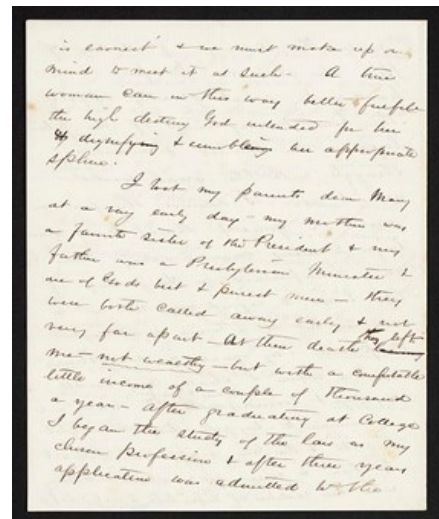 is earnest & we must make up our
mind to meet it as such - A true
woman can in this way better fulfil
the high destiny God intended for her
by dignifying & ennobling her appropriate
sphere.
I lost my parents dear Mary
at a very early day - my mother was
a favorite sister of the President & my
father was a Presbyterian Minister &
one of Gods best & purest men - they
were both called away early & not
very far apart - At their deaths they left
me - not wealthy - but with a comfortable
little income of a couple of thousand
a year - After graduating at College
I began the study of the law as my
chosen profession & after three years
application was admitted to the